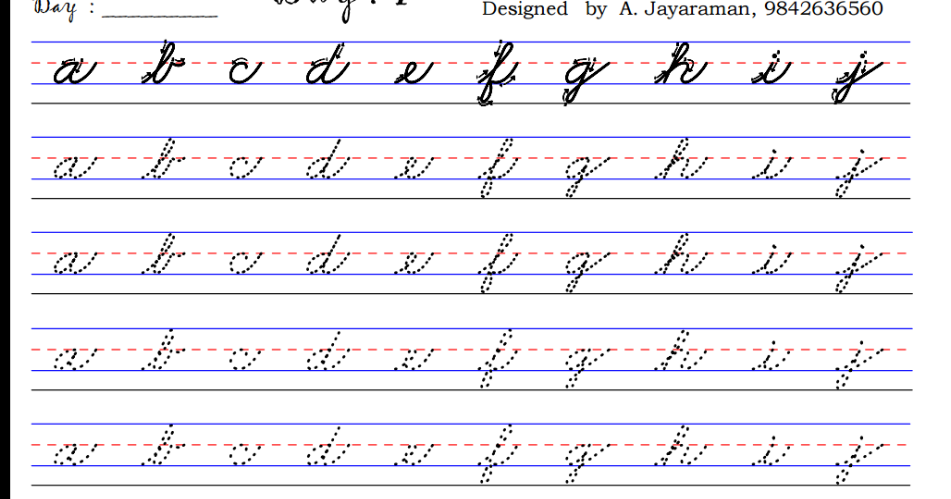 Day : ____________ Day : 1 Designed by A. Jayaraman, 9842636560
a b c d e f g h i j
a b c d e f g h i j
a b c d e f g h i j
a b c d e f g h i j
a b c d e f g h i j